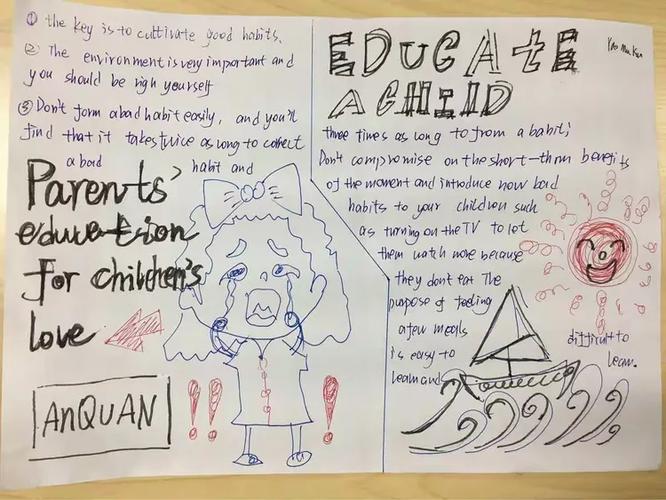 ① the key is to cuttivate good habits.
② The environment is very important and
you should be righ yourself
③ Don't form a bad habit easily, and you'll
find that it takes twice as long to correct
a bad habit and
Parents'
education
for children's
love
ANQUAN
EDUCATE
A CHILD
three times as long to from a babit;
Don't compromise on the short-thrn benefits
of the moment and introduce now bad
habits to your children such
as turning on the TV to let
them watch more because
they dont eat The
purpose of feeling
a few meals
is easy to
learn and
difficult to
learn.